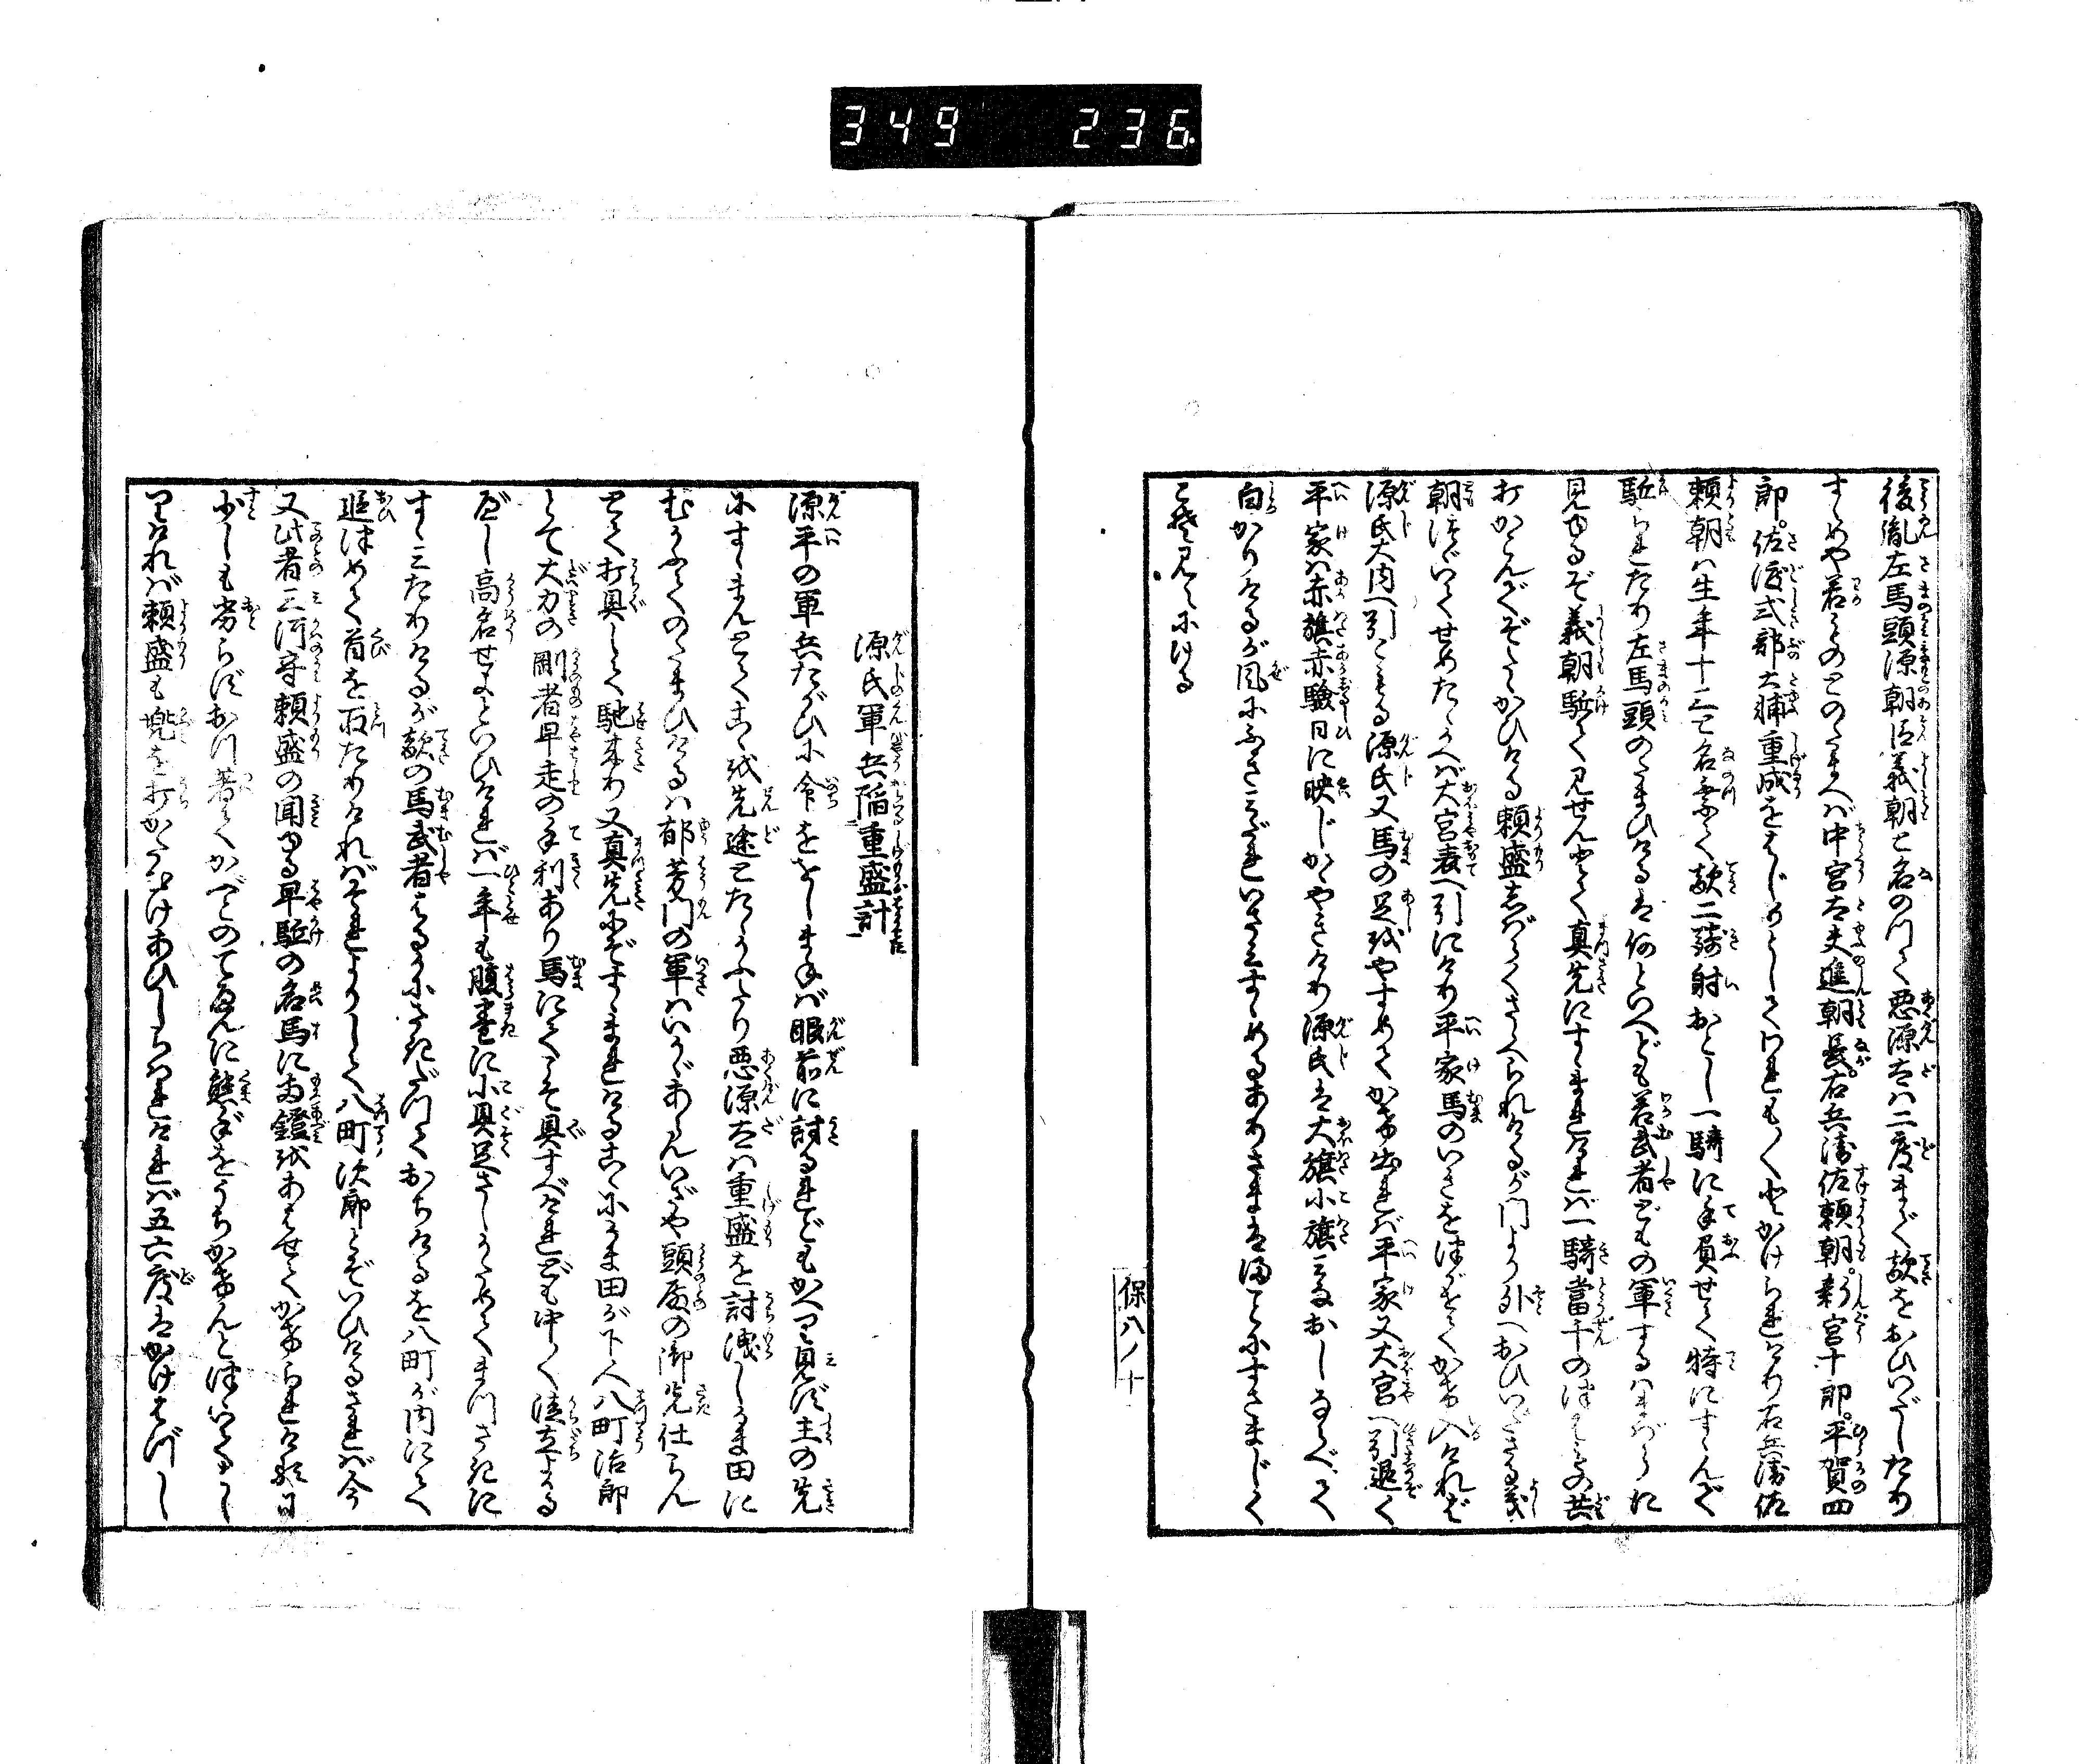 349 236
後胤左馬頭源朝臣義朝と名のつて悪源太は二度まで敵をおひいだしたり
すゝめや若者とのたまへば中宮太夫進朝長。右兵衛佐頼朝。新宮十郎。平賀四
郎。佐渡式部大輔重成をはじめとしてわれも〱とかけられけり右兵衛佐
頼朝は生年十三と名乗て敵二騎射おとし一騎に手負せて特にすゝんで
駈られたり左馬頭のたまひけるは何といへども若武者どもの軍するはまばらに
見ゆるぞ義朝駈て見せんとて真先にすゝまれければ一騎當千の
打かこんでぞたゝかひける頼盛しばらくさゝへられけるが門より外へおひいださる義
朝つゞいてせめたゝへば大宮表へ引にけり平家馬のいきをつがせてかけ入ければ
源氏大内へ引こもる源氏又馬の足をやすめてかけ出れば平家又大宮へ引退く
平家は赤旗赤驗日に映じかゞやきけり源氏は大旗小旗おしなべて
白かりけるが風にふきみだれいさみすゝめるありさまはまことにすさまじく
こそ見えにける
保八ノ十
源氏軍兵陥重盛計
源平の軍兵たがひに命をおしまねば眼前に討るれどもかへり見ず主の先
にすゝまんとてこゝを先途とたゝかふたり悪源太は重盛を討洩しかま田に
むかふてのたまひけるは郁芳門の軍はいかゞあらんいざや頭殿の御先仕らん
とて打具して馳来り又真先にぞすゝまれけるこゝにかま田が下人八町治郎
とて大力の剛者早走の手利あり馬にてこそ具すべけれども中〱徒立よかる
べし高名せよといひければ一年も腹巻に小具足さしかためてまつさきに
すゝみたりけるが敵の馬武者はるかにさきだつておちけるを八町が内にて
追つめて首を取たりければそれよりして八町次郎とぞいひけるされば今
又此者三河守頼盛の聞ゆる早駈の名馬に両鐙をあはせてかけられけるに
少しも劣らずおつ着てかぶとのてへんに熊手をうちかけんとつゞいて
りければ頼盛も兜を打かたぶけあひしらはれければ五六度はかけはづし